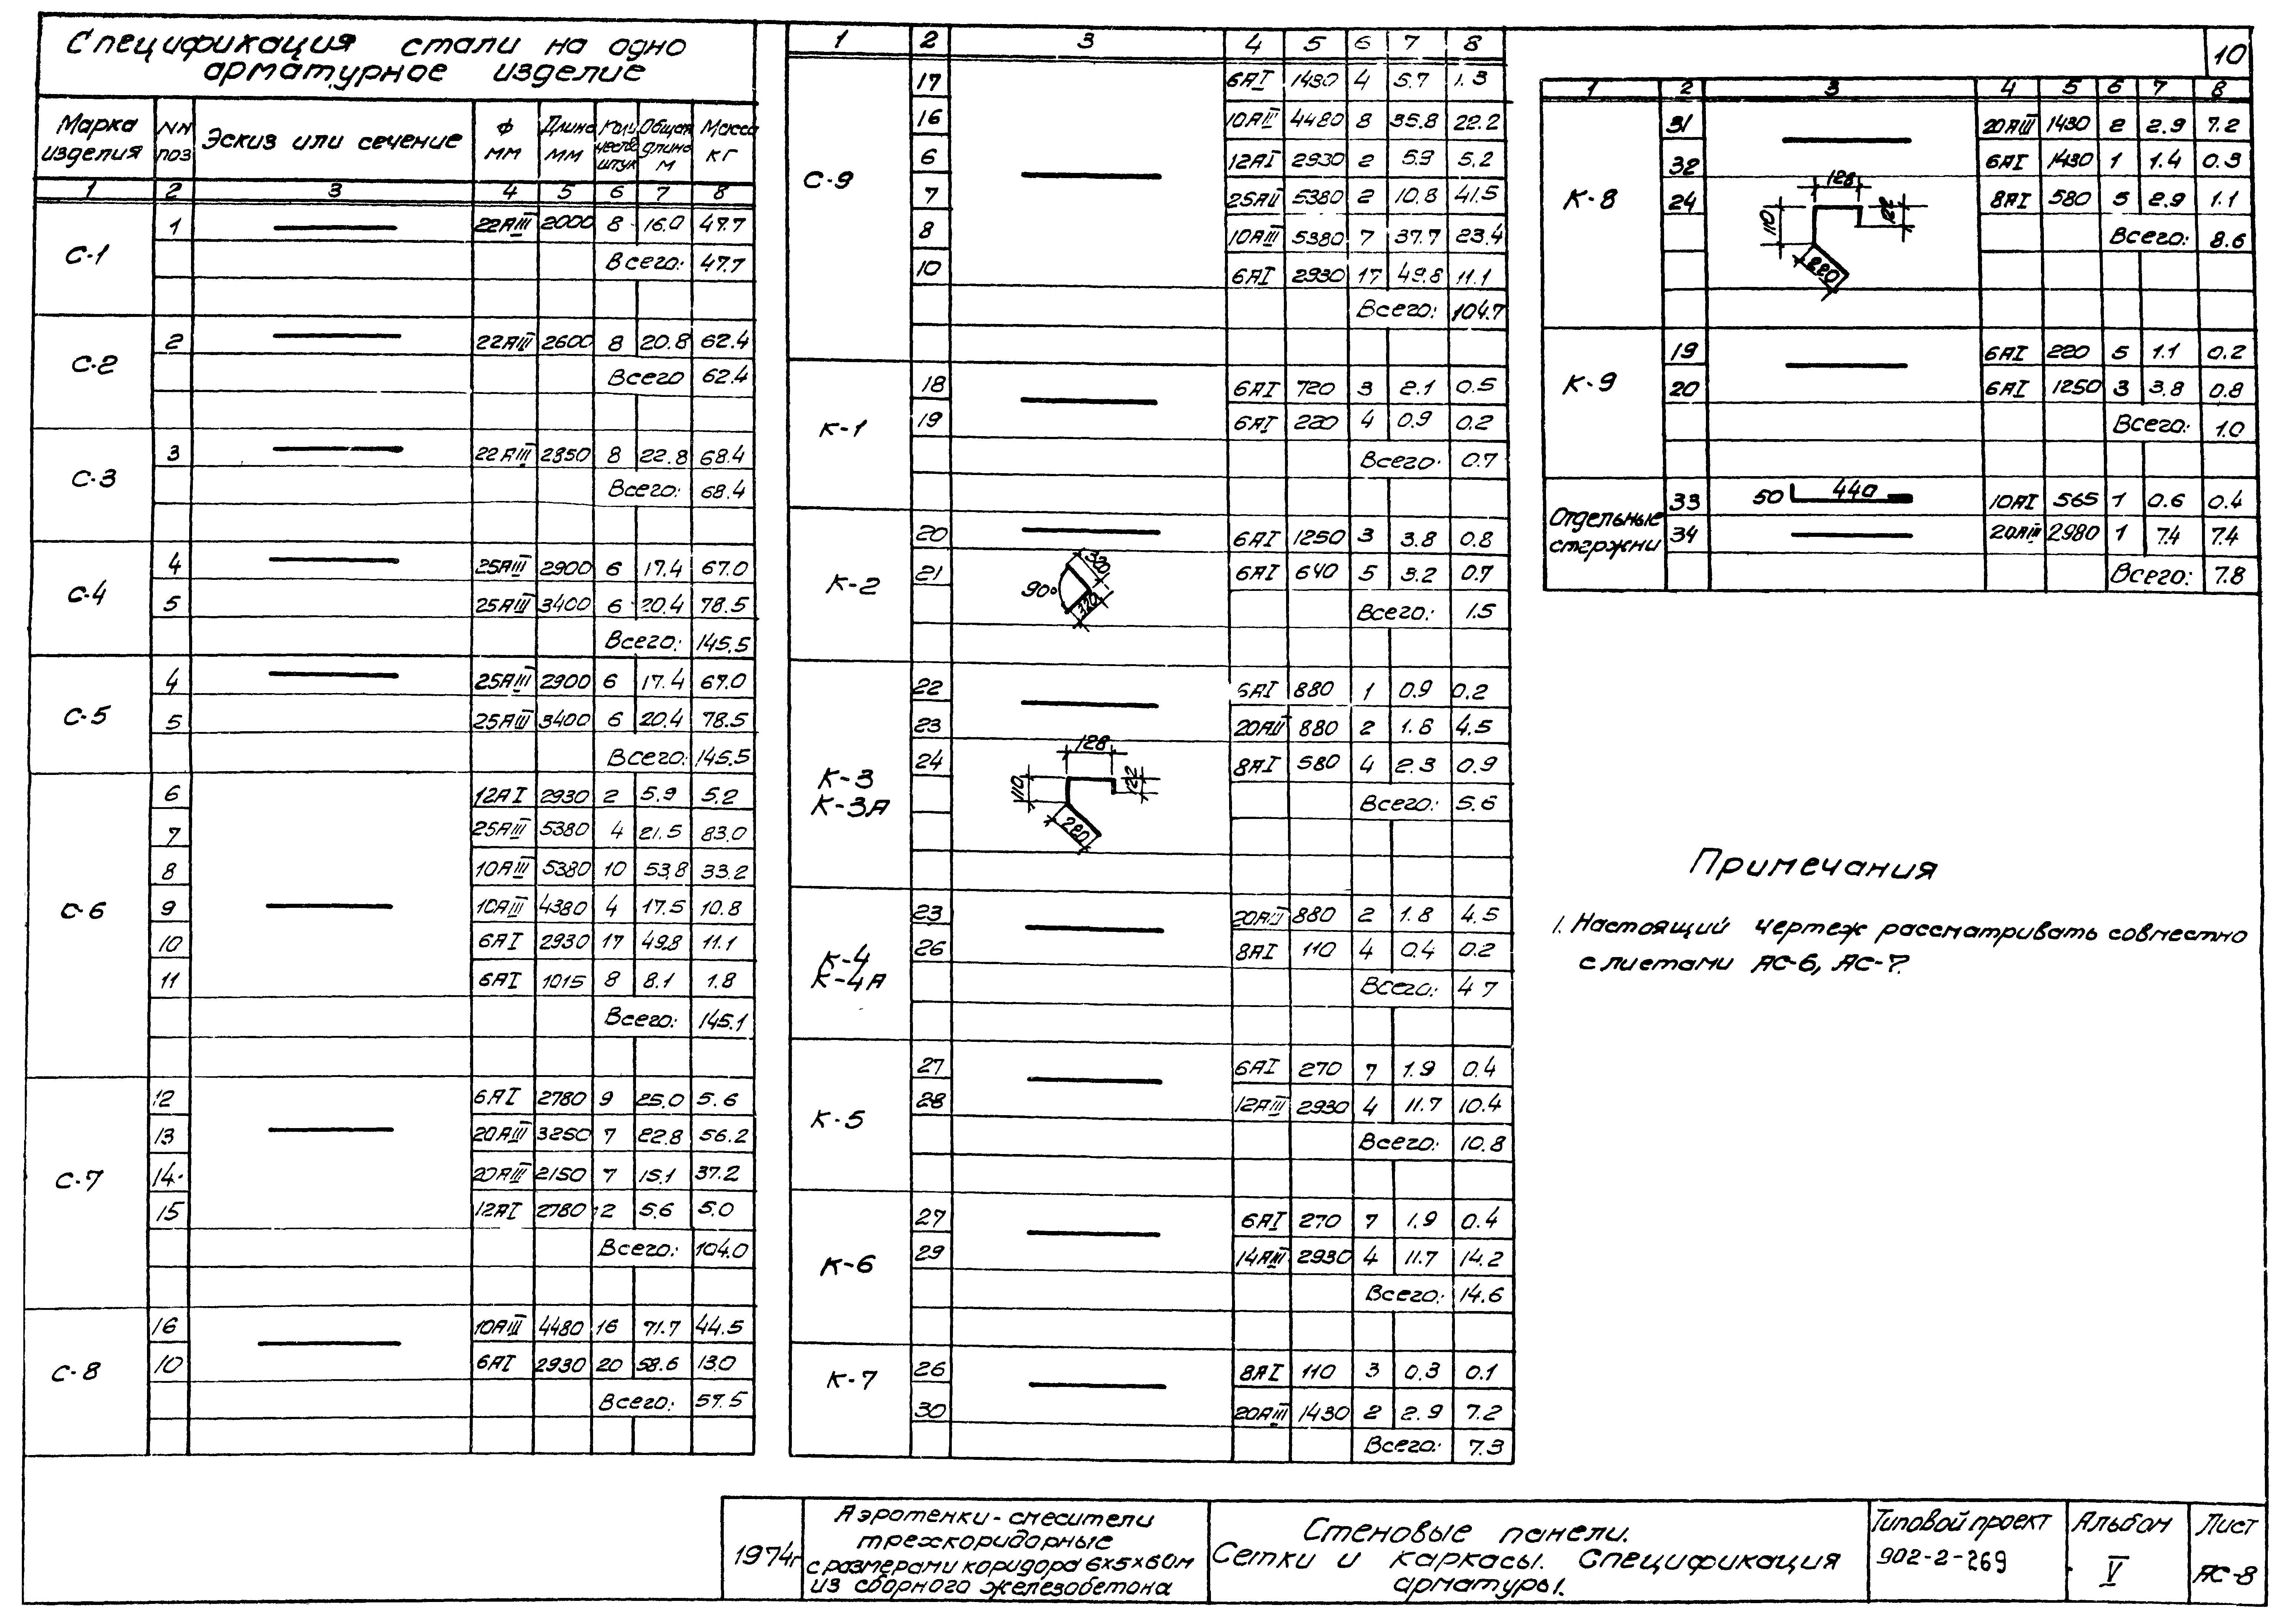 10
Спецификация стали на одно
арматурное изделие
Марка изделия | NN поз | Эскиз или сечение | Ф мм | Длина мм | Коли чество штук | Общая длина м | Масса кг
1 2 3 4 5 6 7 8
С-1
1 22АIII 2000 8 16.0 47.7
Всего: 47.7
С-2
2 22АIII 2600 8 20.8 62.4
Всего 62.4
С-3
3 22АIII 2850 8 22.8 68.4
Всего: 68.4
С-4
4 25АIII 2900 6 17.4 67.0
5 25АIII 3400 6 20.4 78.5
Всего: 145.5
С-5
4 25АIII 2900 6 17.4 67.0
5 25АIII 3400 6 20.4 78.5
Всего: 145.5
С-6
6 12АI 2930 2 5.9 5.2
7 25АIII 5380 4 21.5 83.0
8 10АIII 5380 10 53.8 33.2
9 10АIII 4380 4 17.5 10.8
10 6АI 2930 17 49.8 11.1
11 6АI 1015 8 8.1 1.8
Всего: 145.1
С-7
12 6АI 2780 9 25.0 5.6
13 20АIII 3250 7 22.8 56.2
14 20АIII 2150 7 15.1 37.2
15 12АI 2780 2 5.6 5.0
Всего: 104.0
С-8
16 10АIII 4480 16 71.7 44.5
10 6АI 2930 20 58.6 13.0
Всего: 57.5
1 2 3 4 5 6 7 8
С-9
17 6АI 1430 4 5.7 1.3
16 10АIII 4480 8 35.8 22.2
6 12АI 2930 2 5.9 5.2
7 25АII 5380 2 10.8 41.5
8 10АIII 5380 7 37.7 23.4
10 6АI 2930 17 49.8 11.1
Всего: 104.7
К-1
18 6АI 720 3 2.1 0.5
19 6АI 220 4 0.9 0.2
Всего: 0.7
К-2
20 6АI 1250 3 3.8 0.8
21 90° 320 320 6АI 640 5 3.2 0.7
Всего: 1.5
К-3
К-3А
22 6АI 880 1 0.9 0.2
23 20АII 880 2 1.8 4.5
24 128 110 122 220 8АI 580 4 2.3 0.9
Всего: 5.6
К-4
К-4А
23 20АIII 880 2 1.8 4.5
26 8АI 110 4 0.4 0.2
Всего: 4 7
К-5
27 6АI 270 7 1.9 0.4
28 12АIII 2930 4 11.7 10.4
Всего: 10.8
К-6
27 6АI 270 7 1.9 0.4
29 14АIII 2930 4 11.7 14.2
Всего: 14.6
К-7
26 8АI 110 3 0.3 0.1
30 20АIII 1430 2 2.9 7.2
Всего: 7.3
1 2 3 4 5 6 7 8
К-8
31 20АIII 1430 2 2.9 7.2
32 6АI 1430 1 1.4 0.3
24 128 110 122 220 8АI 580 5 2.9 1.1
Всего: 8.6
К-9
19 6АI 220 5 1.1 0.2
20 6АI 1250 3 3.8 0.8
Всего: 1.0
Отдельные стержни
33 50 440 10АI 565 1 0.6 0.4
34 20АIII 2980 1 7.4 7.4
Всего: 7.8
Примечания
1. Настоящий чертеж рассматривать совместно
с листами АС-6, АС-7.
1974г
Аэротенки-смесители
трехкоридорные
с размерами коридора 6х5х60м
из сборного железобетона
Стеновые панели.
Сетки и каркасы. Спецификация
арматуры.
Типовой проект
902-2-269
Альбом
V
Лист
АС-8